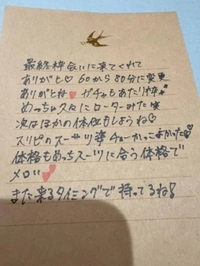 最終枠会いに来てくれて
ありがと♡ 60から80分に変更
ありがとね♥ ガチャもあたり枠
めっちゃ久々にローターみた
次はほかの体位もしようね♡
スリピのスーツ姿チョーかっこよかった♡
体格もめっちスーツに合う体格で
メロい
また来るタイミングで待ってるね!